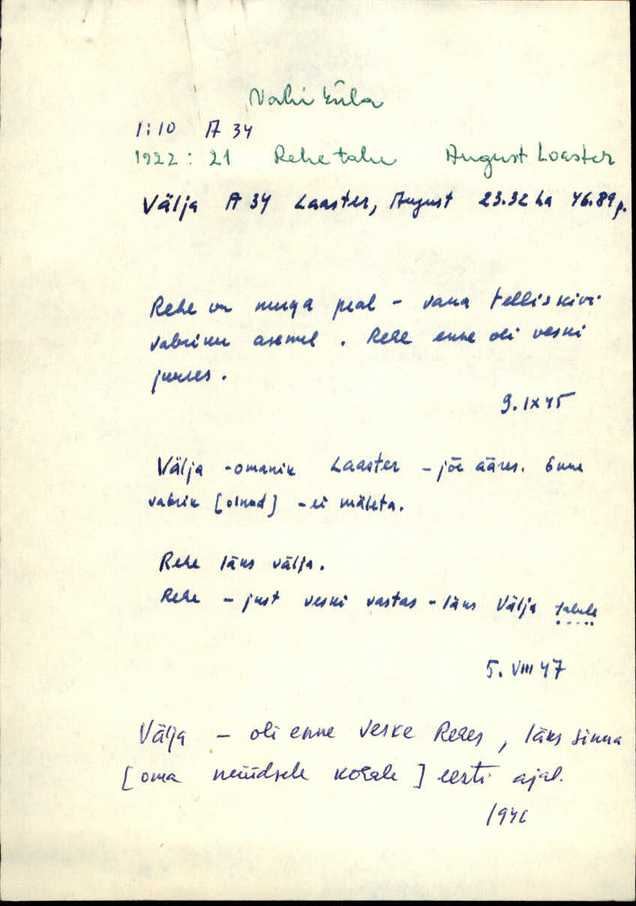 Vahi küla
1:10 A 34
1922: 21 Rehe talu August Loaster
Välja A 34 Laaster, August 23.32 ha 46.89 p.
Rehe on nurga peal – vana telliskivi
vabriku asemel. Rehe enne oli veski
juures.
9. IX 45
Välja - omanik Laaster – jõe ääres. Enne
vabrik [olnud] – ei mäleta.
Rehe läks välja.
Rehe – just veski vastas – läks Välja
5. VIII 47
Välja – oli enne Veske Rehes, läks sinna
[oma nüüdsele kohale] eesti ajal.
1946